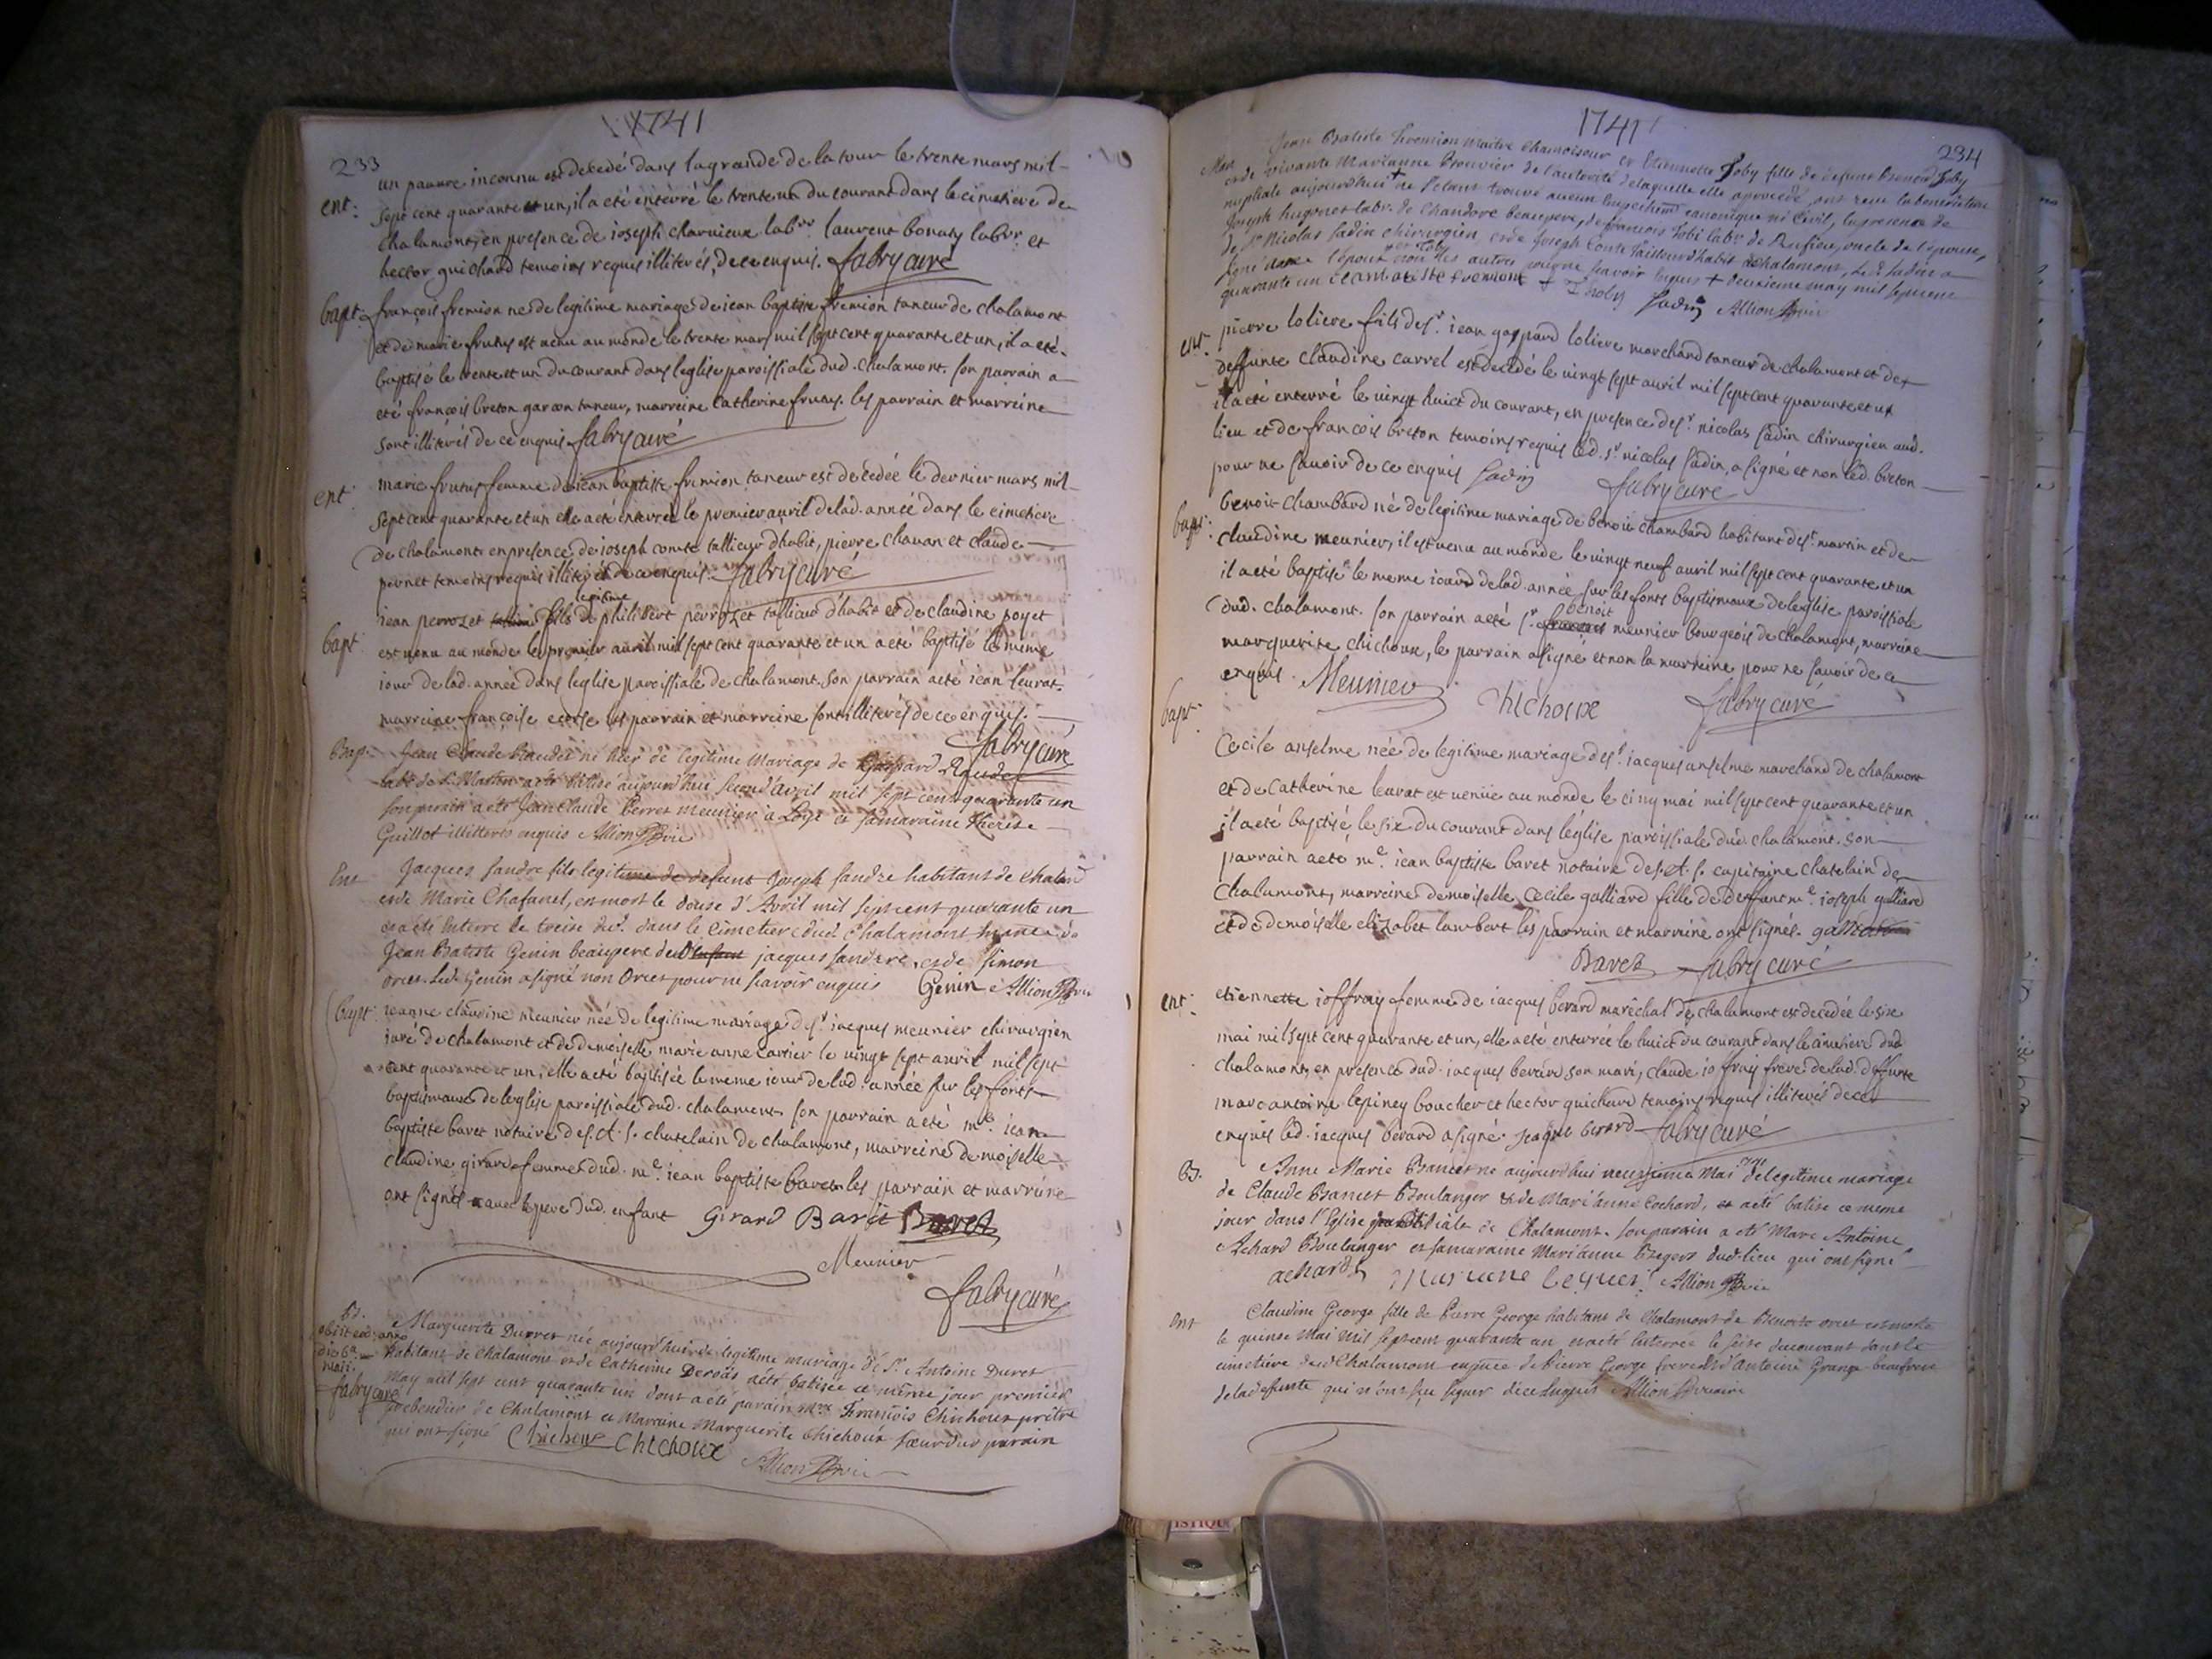 1741
233
un pauvre inconnu est decedé dans la grande de la tour le trente mars mil
ent: sept cent quarante et un, il a eté enterré le trente un du courant dans le cimetiere de
chalamont, en presence de ioseph charvieux labvr laurent bonaty labvr et
hector guichard temoins requis illiterés, de ce enquis. fabry curé
bapt: françois fremion né de legitime mariage de iean baptiste fremion taneur de chalamont
et de marie frutus est venu au monde le trente mars mil sept cent quarante et un, il a eté
baptisé le trente et un du courant dans leglise paroissiale dud. chalamont. son parrain a
eté françois breton garcon taneur, marreine Catherine frutus. les parrain et marreine
sont illiterés de ce enquis fabry curé
ent: marie frutus femme de iean baptiste fremion taneur est decedée le dernier mars mil
sept cent quarante et un elle a eté enterrée le premier avril de lad. année dans le cimetiere
de chalamont en presence de ioseph comte tallieur dhabit, pierre chavan et claude
pernet temoins requis illiterés de ce enquis. fabry curé
legitime
iean perrozet fils de philibert perrozet tallieur d'habit et de claudine poyet
bapt: est venu au monde le premier avril mil sept cent quarante et un a eté baptisé le meme
iour de lad. année dans leglise paroissiale de chalamont. son parrain a eté iean leurat.
marreine françoise les parrain et marreine sont illiterés de ce enquis.
fabry curé
Bap: Jean Claude Baudet né hier de legitime Mariage de Gaspard
labr de St Martin a eté batisé aujourd'huy second d'avril mil sept cent quarante un
son parain a eté Jean Claude Perret meunier a Loye et sa maraine Therese
Guillot illitterés enquis Allion Pvic
Ent Jacques sandre fils legitime de defunt Joseph sandre habitant de chalamt
et de Marie Chafanel, est mort le douse d'Avril mil sept cent quarante un
et a eté Enterré le treise dud. dans le Cimetiere dud. Chalamont
Jean Batiste Genin beaupere de jacques sandre, et de simon
orcet. Led. Genin a signé non Orcet pour ne scavoir enquis Genin Allion Pvic
bapt: ieanne claudine meunier née de legitime mariage de sr iacques meunier chirurgien
iuré de chalamont et de demoiselle marie anne cartier le vingt sept avril mil sept
cent quarante et un; elle a eté baptisée le meme iour de lad. année sur les fonts
baptismaux de leglise paroissiale dud. chalamont. son parrain a eté me. iean
baptiste baret notaire de s. A. s. chatelain de chalamont, marreine demoiselle
claudine girard femme dud. me. iean baptiste baret les parrain et marreine
ont signés avec le pere dud. enfant Girard Baret Baret
Meunier
fabry curé
B.
obiit eod. anno
die 6a
maii.
fabry curé
Marguerite Durret née aujourd'hui de legitime mariage de Sr. Antoine Duret
habitant de Chalamont et de Catherine a eté batisée ce même jour premier
May mil sept cent quarante un dont a eté parain Mre François Chichoux prêtre
prebendier de Chalamont et Maraine Marguerite Chichoux soeur du parain
qui ont signé Chichoux Chichoux
Allion Pvic
1741
234
Mar Jean Batiste Fremion Maitre Chamoiseur et Etiennette Joby fille de defunt Benoit Joby
et de vivante Marianne Bouvier de l'autorité de laquelle elle a procedé, ont reçu la benediction
nuptiale aujourd'hui + ne s'etant trouvé aucun Empechemt canonique ni Civil, en presence de
Joseph hugonet labr. de Chandore beaupere, de francois Tobi labr. de Rufieu, oncle de l'epouse,
de Sr Nicolas sadin chirurgien et de Joseph Comte Tailleur d'habit de chalamont, Led. Sadin a
signé avec l'epoux non les autres pour ne scavoir requis + deuxieme may mil sept cent
quarante un Sadin Allion Pvic
ent: pierre loliere fils de sr. iean gaspard loliere marchand taneur de chalamont et de
deffunte claudine carrel est decedé le vingt sept avril mil sept cent quarante et un
il a eté enterré le vingt huict du courant, en presence de sr. nicolas sadin chirurgien aud.
lieu et de françois breton temoins requis led. sr nicolas sadin, a signé et non led. breton
pour ne savoir de ce enquis Sadin fabry curé
bapt: benoit chambard né de legitime mariage de benoit chambard habitant de st. martin et de
claudine meunier, il est venu au monde le vingt neuf avril mil sept cent quarante et un
il a eté baptisé le meme iour de lad. année sur les fonts baptismaux de leglise paroissiale
benoit
dud. chalamont. son parrain a eté sr. meunier bourgeois de chalamont, marreine
marguerite chichoux, le parrain a signé et non la marreine pour ne savoir de ce
enquis. Meunier Chichoux fabry curé
bapt: Cecile anselme née de legitime mariage de sr. iacques anselme marchand de chalamont
et de catherine leurat est venüe au monde le cinq mai mil sept cent quarante et un
il a eté baptisé le six du courant dans leglise paroissiale dud. chalamont. son
parrain a eté me. iean baptiste baret notaire de s. A. s. capitaine chatelain de
chalamont, marreine demoiselle Cecile galliard fille de deffunt me. ioseph galliard
et de demoiselle elizabet lambert les parrain et marreine ont signés.
Baret fabry curé
ent: etiennette ioffray femme de iacques berard maréchal de chalamont est decedée le six
mai mil sept cent quarante et un, elle a eté enterrée le huict du courant dans le cimetiere dud
chalamont, en presence dud. iacques berard son mari, claude ioffray frere de lad. deffunte
marc antoine lepiney boucher et hector guichard temoins requis illiterés de ce
enquis led. iacques berard a signé. Jaque berard fabry curé
B. Anne Marie Bancet né aujourd'hui neuvieme Mai 1741 de legitime mariage
de Claude Bancet Boulanger et de Marianne Cochard, et a eté batisé ce meme
jour dans l'Eglise paroissiale de Chalamont. son parain a eté Marc Antoine
Achard Boulanger et sa maraine Marianne dud. lieu qui ont signé
achard Allion Pvic
Ent Claudine George fille de Pierre George habitant de Chalamont de Benoite orcet est morte
le quinse Mai mil sept cent quarante un et a eté Enterrée le seise du courant dans le
cimetiere dud Chalamont de Pierre George frere et d'Antoine Grange beaufrere
de la defunte qui n'ont sçu signer de ce Enquis Allion Pvicaire